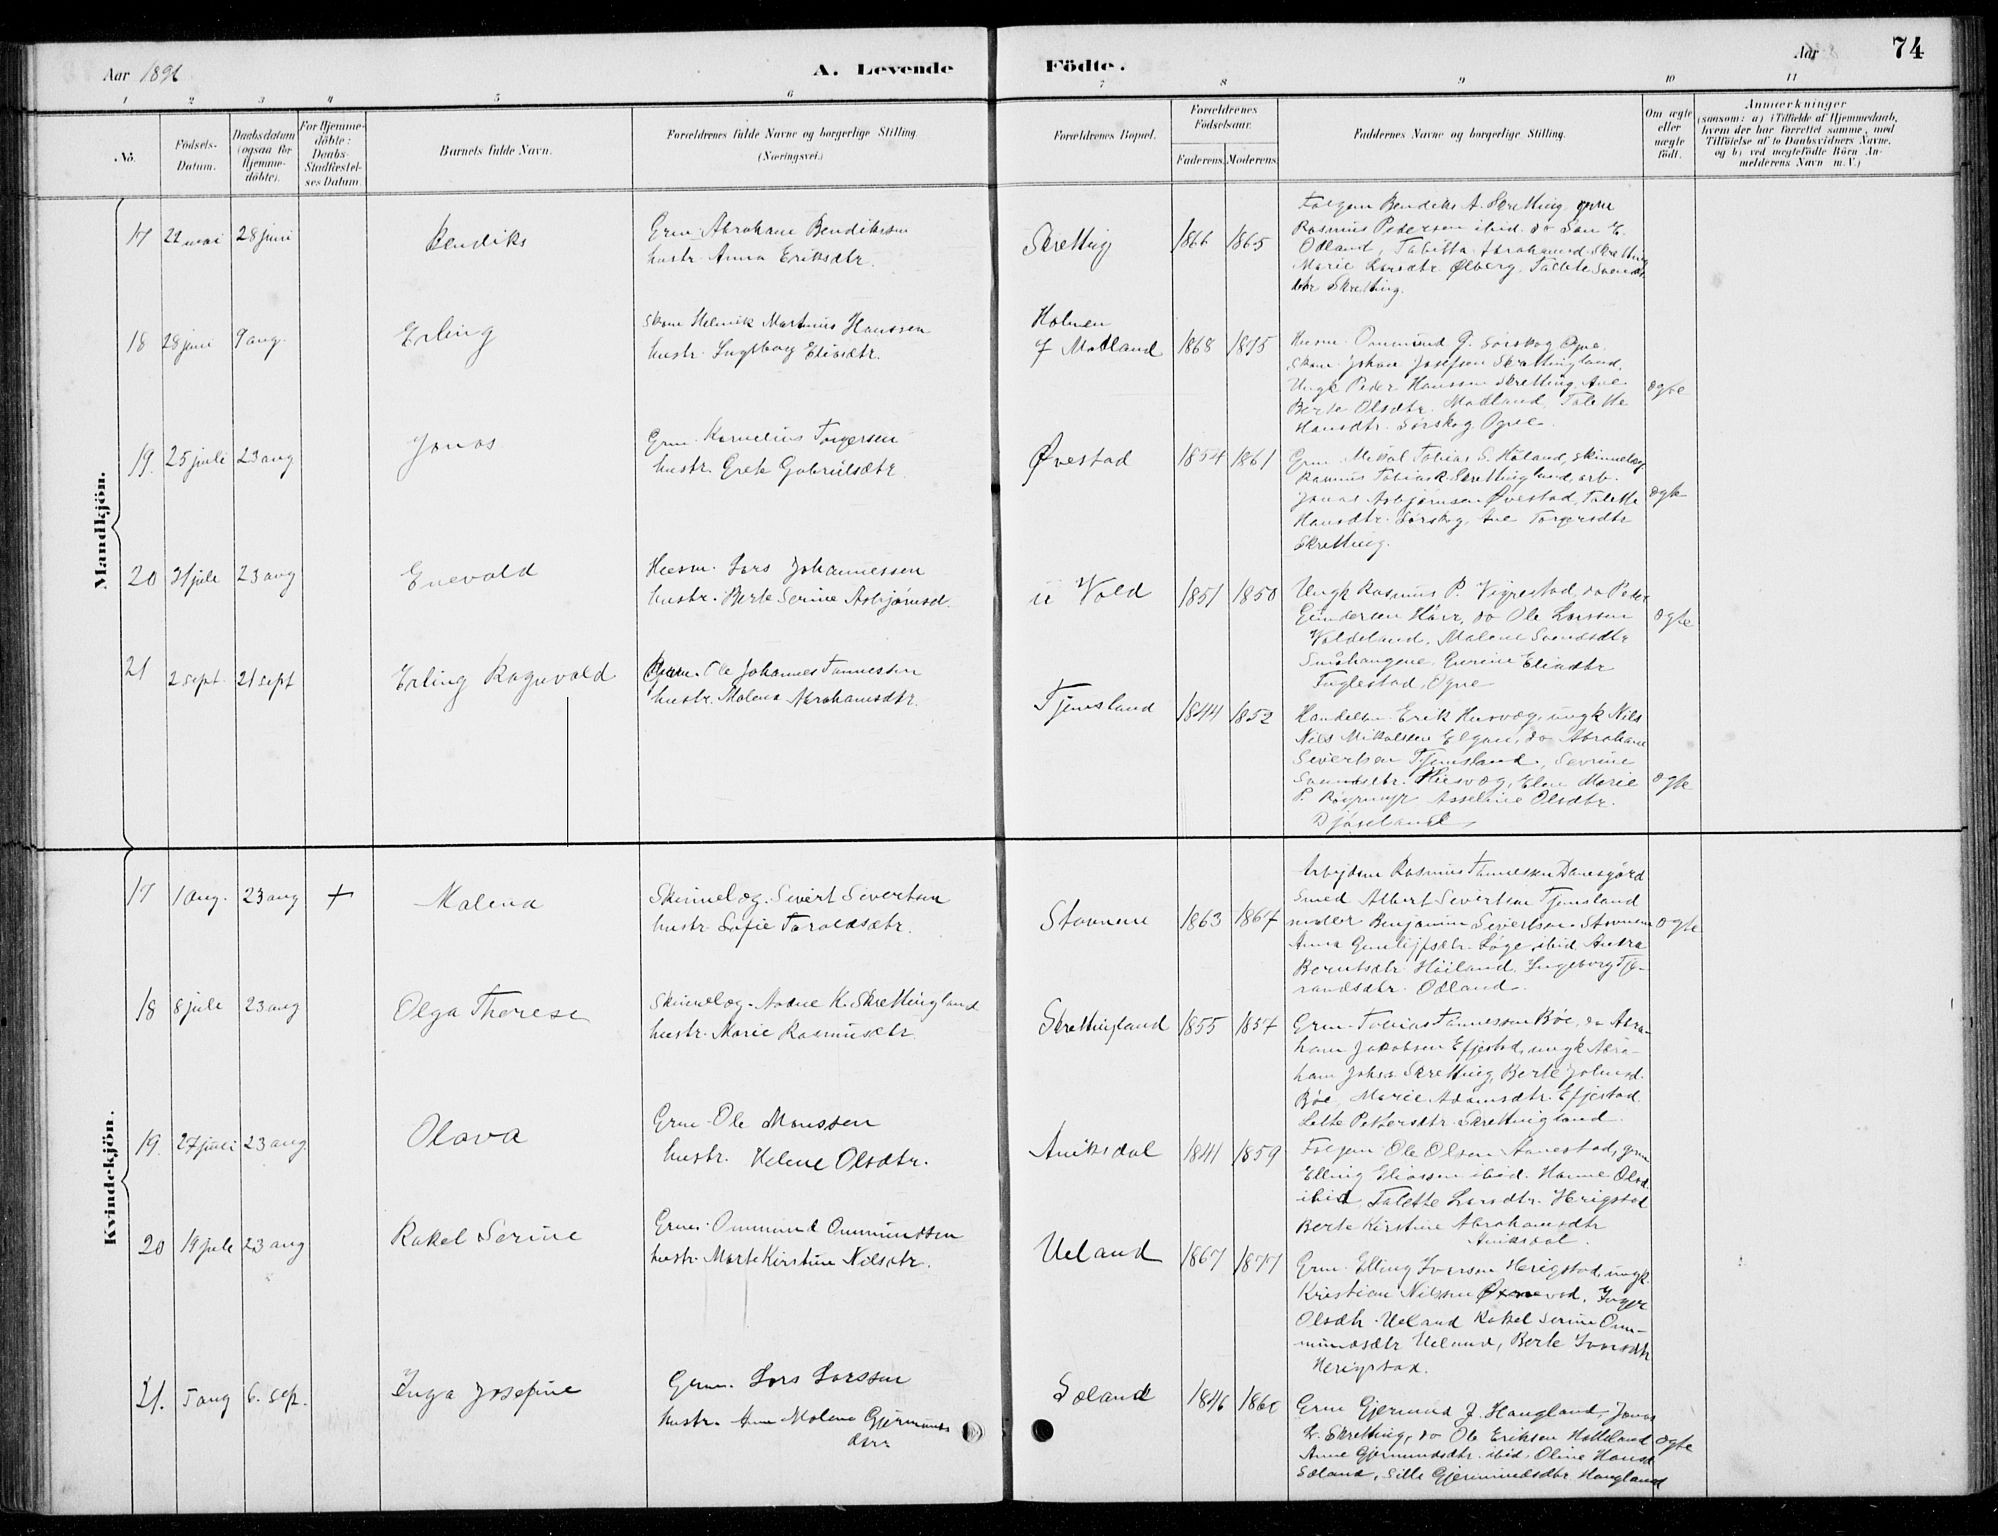 Aar 1896
A. Levende
Födte.
Aar
74
1 2 3 4 5 6 7 8 9 10 11
No.
Födsels-
Datum.
Daabsdatum
(ogsaa for
Hjemme-
döbte).
For Hjemme-
döbte:
Daabs-
Stadfæstel-
ses Datum.
Barnets fulde Navn.
Forældrenes fulde Navne og borgerlige Stilling.
(Næringsvei.)
Forældrenes Bopæl.
Forældrenes
Födselsaar.
Faderens.
Moderens.
Faddernes Navne og borgerlige Stilling.
Om ægte
eller
uægte
födt.
Anmærkninger
(saasom: a) i Tilfælde af Hjemmedaab,
hvem der har forrettet samme, med
Tilföielse af to Daabsvidners Navne,
og b) ved uægtefödte Börn An-
melderens Navn m. V.)
Mandkjön.
17 21 mai 28 juni
Bendiks
Grm. Abraham Bendiksen
hustr. Anna Eriksdtr.
Skretting
1866 1865
Folgem Bendiks A. Skretting, grm
Rasmus Pedersen ibid. do San E.
Odland, Tabitta Abrahamsd. Skretting
Marie Larsdtr. Ølberg, Talette Svends
dtr Skretting.
18 28 juni 9 aug.
Erling
Skom Helmik Martinus Hanssen
hustr. Ingeborg Eliasdtr.
Holmen
f Modland
1868 1875
Husm. Ommund G. Sørskog Ogne,
Skom. Johan Josefsen Skrettingland,
Ungk Peder Hanssen Skretting, Ane
Berte Olsdtr. Modland, Talette
Hansdtr. Sørskog Ogne.
ægte
19. 25 juli 23 aug
Jonas
Grm. Kornelius Torgersen
hustr. Grete Gabrielsdtr
Øvestad
1854 1861
Grm. Mikal Tobias S. Høland, skinnelæg
Rasmus Tobias R. Skrettingland, arb.
Jonas Asbjørnsen Øvestad, Talette
Hansdtr. Sørskog, Ane Torgersdtr
Skretting.
ægte
20 21 juli 23 aug
Enevald
Husm. Lars Johannessen
hustr. Berte Serine Asbjørnsd.
u Vold
1851 1850
Ungk Rasmus P. Vigrestad, do Peder
Gundersen Hårr, do Ole Larssen
Voldeland, Malene Svendsdtr
Smuhaugene, Gurine Eliasdtr
Fuglestad, Ogne
ægte
21 2 sept. 21 sept
Erling Ragnvald
Grm. Ole Johannes Tønnessen
hustr. Malena Abrahamsdtr.
Tjemsland
1844 1852
Handelsm. Erik Husvæg, ungk Nils
Nils Mikalsen Elgan, do Abraham
Sivertsen Tjemsland, Sevrine
Svendsdtr. Husvæg, Elen Marie
P. Røyrmyr Asseline Olsdtr.
Djåseland
ægte
Kvindekjön.
17 1 aug. 23 aug +
Malena
Skinnelæg. Sivert Sivertsen
hustr Sofie Taraldsdtr.
Stavnem
1863 1867
Arbejdsm Rasmus Tønnessen Danesgård
Smed Albert Sivertsen Tjemsland
møller Benjamin Sivertsen Stavnem
Anna Gunleifsdtr. Løge ibid Andra
Berntsdtr Høiland, Ingeborg Tja-
randsdtr. Odland.
ægte
18 8 juli 23 aug
Olga Therese
Skinnelæg. Aadne K. Skrettingland
hustr. Marie Rasmusdtr
Skrettingland
1855 1857
Grm. Tobias Tønnessen Bøe, do Abra-
ham Jakobsen Efjestad, ungk Abra-
ham Johs. Skretting, Berte Johnsd.
Bøe, Marie Adamsdtr. Efjestad
Lette Pettersdtr. Skrettingland
19. 27 juli 23 aug.
Olava
Grm. Ole Monssen
hustr. Helene Olsdtr.
Aniksdal
1841 1859
Folgem Ole Olsen Aanestad, grm
Elling Eliassen ibid. Hanne Olsd.
ibid Talette Larsdtr. Herigstad
Berte Kirstine Abrahamsdtr
Aniksdal.
20 19 juli 23 aug
Rakel Serine
Grm. Ommund Ommundsen
hustr Marte Kirstine Nilsdtr.
Ueland
1867 1877
Grm. Elling Iversen Herigstad, ungk
Kristian Nilsen Øxnevad, Inger
Olsdtr. Ueland Rakel Serine Om-
mundsdtr Ueland, Berte Iversdtr
Herigstad.
21. 5 aug 6. sep.
Inga Josefine
Grm. Lars Larssen
hustr. Ane Malene Gjermunds
dtr
Søland
1846 1860
Grm Gjermund J. Haugland, Jonas
L. Skretting, do Ole Eriksen Hatteland
Anne Gjermundsdtr. ibid, Oline Hansd
Søland, Sille Gjermundsdtr. Haugland
ægte